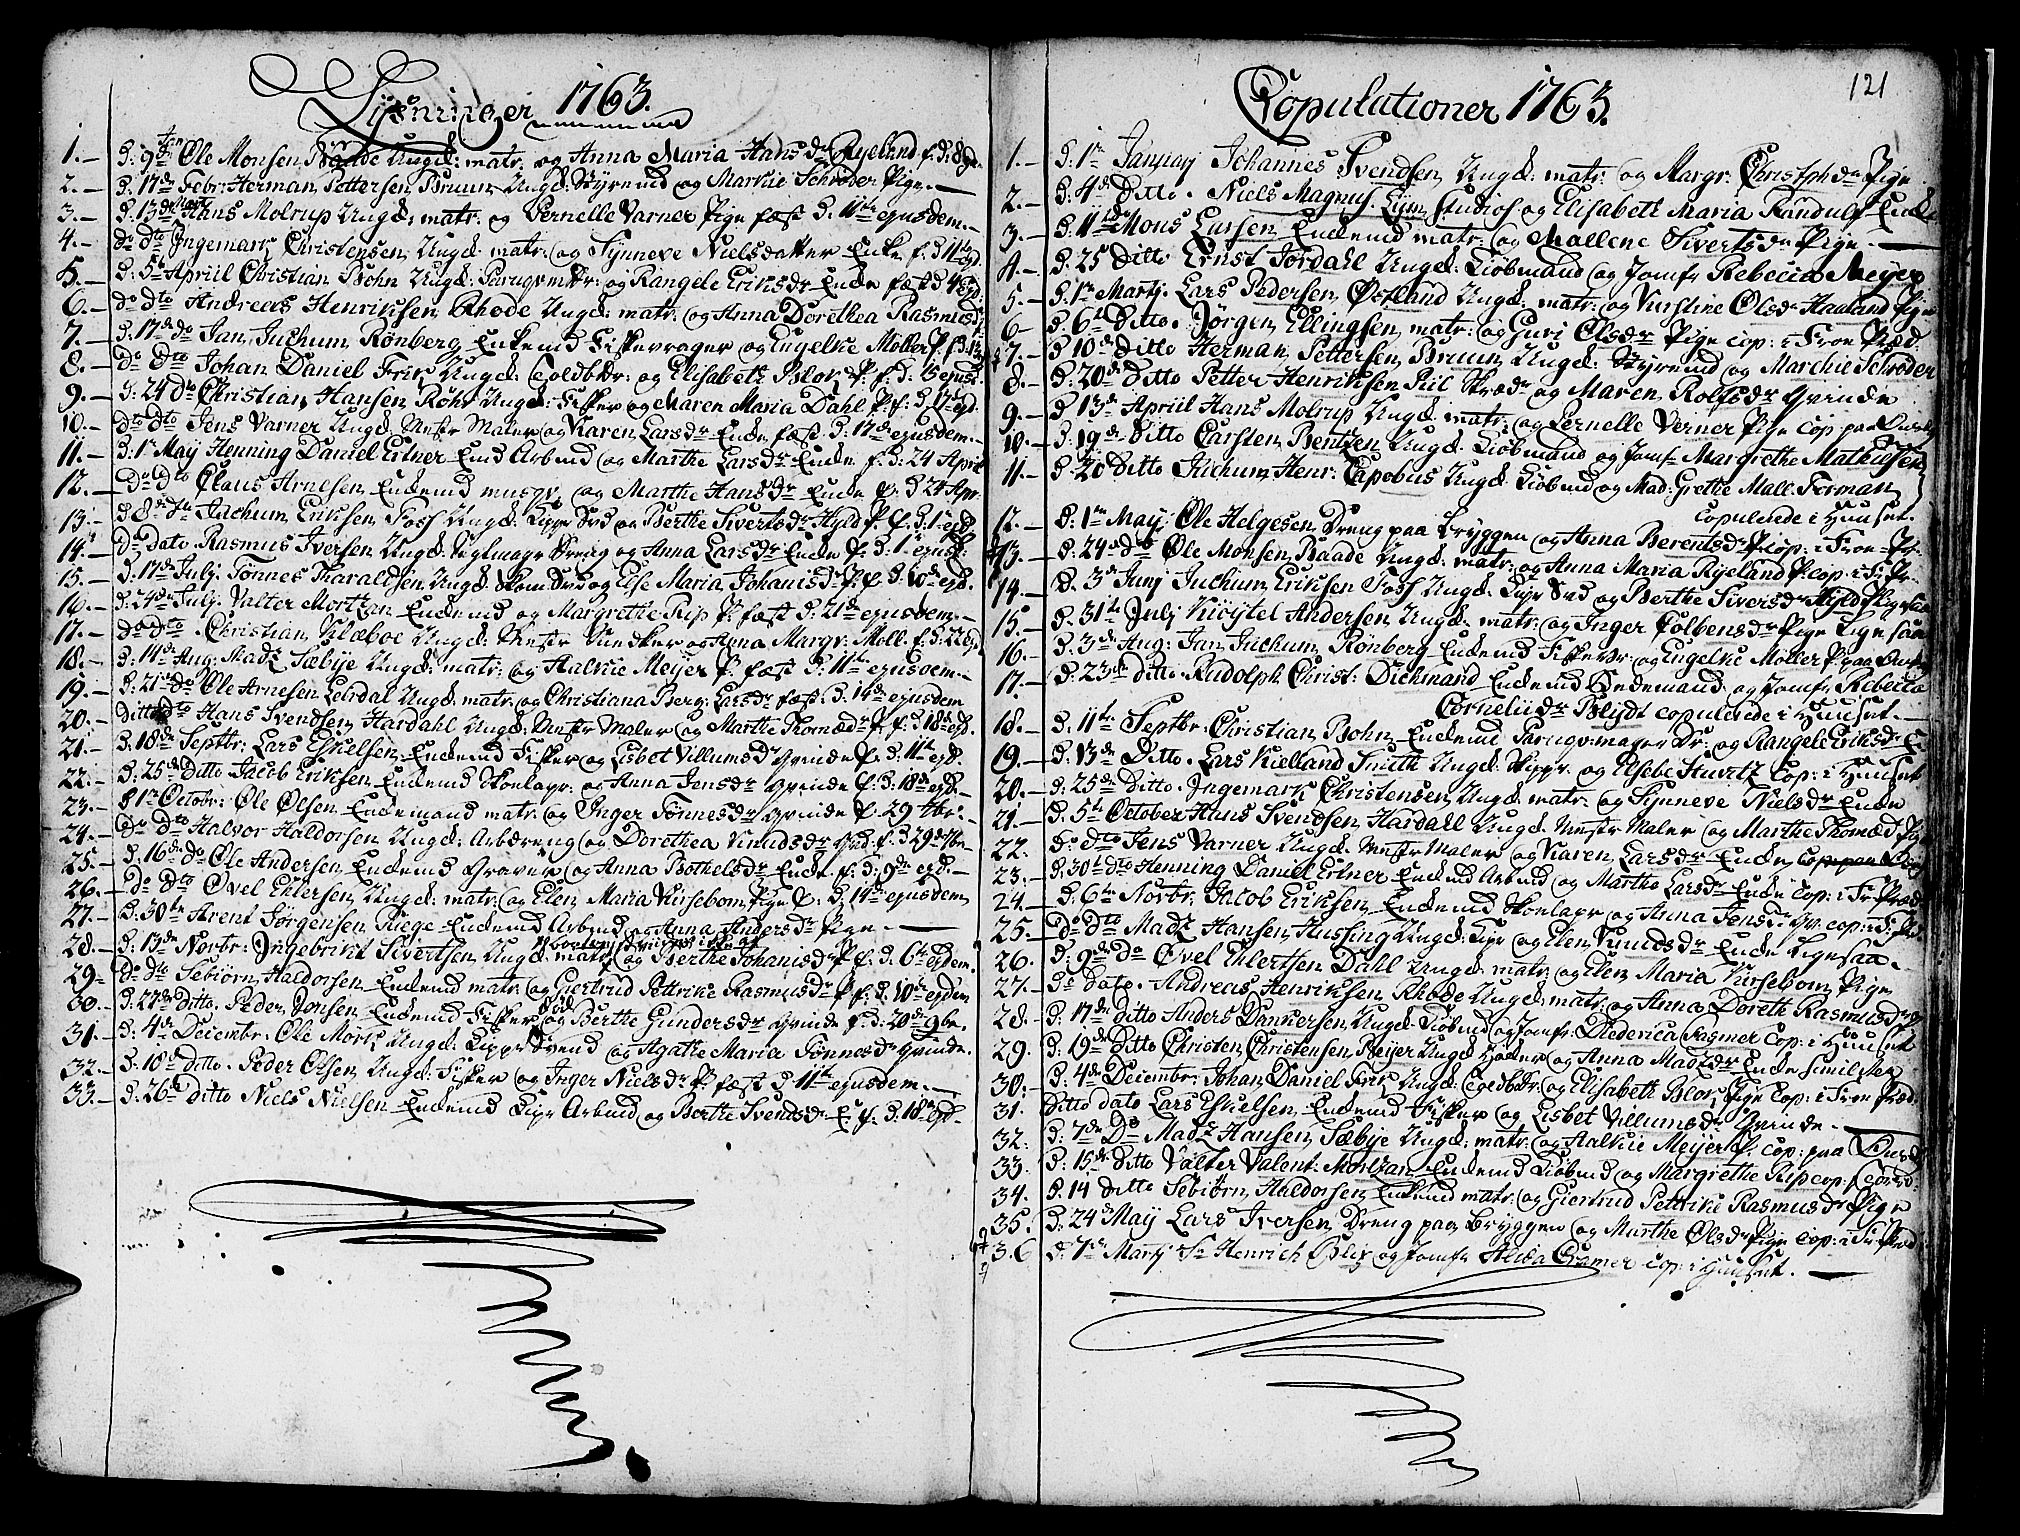 Lysninger 1763.
1. – D: 9de Jan Ole Monsen Baade Ungd: matr: og Anna Maria Hans dr Ryeland f. D: 8 ejd.
2. – D. 17de Febr: Herman Pettersen Bruun Ungd: Styrmd og Markie Schrøder Pige. –
3. – D. 13de Mart Hans Molrup Ungd: matr: og Pernelle Varner Pige fæst D. 11te ejusdem. –
4. – do dto Ingemark Christensen Ungd: matr: og Synneve Nielsdatter Enke f. D 11te ejd.
5. – D. 5te Apriil Christian Bohn Ungd: Paruqvmkr: og Rangele Eriksdr Enke fæst D 4 ejd:
6. – do dto Andreas Henriksen Rhode Ungd: matr: og Anna Dorethea Rasmusdr
7. – D. 17de do Jan Juchum Rønberg Enkemd Fiskevrager og Engelke Møller P. f. D. 13
8. – do dto Johan Daniel Frik Ungd: Goldbdr: og Elisabeth Blok P. f. D. 15 ejusd.
9. – D: 24 do Christian Hansen Røhr Ungd: Fisker og Maren Maria Dahl P. f: D. 17de ejd.
10. – do dto Jens Varner Ungd. Mestr Maler og Karen Larsdr Enke fæst D. 17de ejusdem. –
11. – D. 1te May Henning Daniel Ertner Enkmd Arbmd og Marthe Larsdr Enke f. D: 24 April
12. – do dto Claus Arnesen Enkemd musqv. og Marthe Hansdr Enke f. D 24 Apr.
13. – D 8de Jun Juchum Eriksen Foss Ungd: Kippr Svd og Berthe Sivertsdr Hyld P. f. D. 1te ejd
14. – Do dato. Rasmus Iversen Ungd: Seglmagr Sveng og Anna Larsdr Enke f. D. 1te ejusd:
15. – D. 17de July. Tønnes Tharaldsen Ungd. Skom Svd og Else Maria Johanisdr P. f. D. 10de ejd.
16. – D. 24de July. Valter Mortzan Enkemd og Margrethe Rip P. fæst D. 21de ejusdem. –
17. – do dto. Christian Klæboe Ungd: Mestr Snedker og Anna Margr: Moll. f. D. 22 ejd
18. – D. 14de Aug: Madz Sæbye Ungd: matr: og Aalkie Meyer P. fæst D. 11te ejusdem. –
19. – D. 21de do Ole Arnesen Leirdal Ungd: matr og Christiana Berg: Larsdr fæst: D. 14de ejusdem
20. – Ditto dto Hans Svendsen Hardahl Ungd: Mestr Maler og Marthe Thomædr P. f. D. 18de ejd.
21. – D. 18de Septbr: Lars Eskelsen Enkemd Fisker og Lisbet Villumsdr Qvinde f. D. 11te ejd.
22. – D. 25de Ditto Jacob Eriksen Enkemd Skolapr: og Anna Jensdr Qvinde f. D. 18de ejd. –
23. – D 1te Octobr: Ole Olsen Enkemand matr: og Inger Tønnesdr Qvinde f. 29 7br: –
24. – Do dto Halvor Haldorsen Ungd: Arbdreng og Dorethea Knudsdr Qvd. f. D 29de 7br –
25. – D. 16de do Ole Andersen Enkemd Graver og Anna Bothelsdr Enke f. D. 9de ejd. –
26. – Do dto Ovel Ehlersen Ungd: matr: og Elen Maria Kirsebom Pige f. D. 14de ejusdem
27. – D. 30te Arent Jørgensen Ruege Enkemd Arbmd og Anna Andersdr Pige. –
28. – D. 13de Novbr: Ingebrikt Sivertsen Ungd: matr og Berthe Johanisdr P. f. D. 6te ejdem.
29 – Do dto Sebiørn Haldorsen Enkemd matr: og Giertrud Pettrike Rasmusdr P. f. D. 10de ejdem
30. – D. 27de Ditto. Peder Jonsen Enkemd Fisker og Berthe Gundersdr Qvinde f. D. 20de 9br.
31. – D. 4de Decembr: Ole Mørk Ungd: Kippr Svend og Agathe Maria Tønnesdr Qvinde.
32. – D. 18de Ditto. Peder Olsen Ungd: Fisker og Inger Nielsdr P. fæst D 11te ejusdem. –
33. – D. 26de Ditto Niels Nielsen Enkemd Kipr Arbmd og Berthe Svendsdr E. f. D. 18de ejd. –
Copulationer 1763.
121
1. – D: 1te January Johannes Svendsen Ungd: matr: og Margr: Christophdr Pige
2. – D: 4de Ditto. Niels Magnus Lijm Studios og Elisabeth Maria Randulf Enke
3. – D. 11te do Mons Larsen Enkemd matr: og Mallene Sivertsdr Pige. –
4. – D. 25 Ditto Ernst Jordahl Ungd. Kiøbmand og Jomfr Rebecca Meyer
5. – D. 1te Marty. Lars Pedersen Østland Ungd: matr: og Kirstine Olsdr Hauland Pige
6 – D. 6te Ditto. Jørgen Ellingsen matr: og Guri Olsdr Pige cop: i Froe Præd
7. – D 10de Ditto Herman Pettersen Bruun Ungd: Styrmd og Marchie Schrøder
8. – D. 20de Ditto Petter Henriksen Piil Skrædr og Maren Rolfsdr Qvinde
9. – D 13de Apriil Hans Molrup Ungd. matr: og Pernelle Verner Pige Cop. paa
10. – D. 19de Ditto Carsten Bentzen Ungd. Kiøbmand og Jomfr Margrethe Mathiesen
11. – D 20 Ditto Juchum Henr: Capobus Ungd. Kiøbmd og Mad: Grethe Mall. Ferman
copulerede i Huuset.
12. – D. 1te May Ole Helgesen Dreng paa Bryggen og Anna Berentsdr P cop: i Froe-Pr.
13. – D. 24de do Ole Monsen Baade Ungd: matr: og Anna Maria Ryeland P. cop: i Fr Pr
14. – D. 3de Junj Juchum Eriksen Foss Ungd. Kipr Svd og Berthe Siversdr Hyld Pige
15. – D. 31te July Knøytel Andersen Ungd. matr: og Inger Colbensdr Pige Ligesaa
16. – D. 3de Aug: Jan Juchum Rønberg Enkemd Fiskevr: og Engelke Møller P. paa
17. – D. 23de Ditto. Rudolph Christ: Dichmand Enkemd Bedemand og Jomfr Ribecta
Cornelii dr Blydt copulerede i Huuset. –
18. – D. 11te Septbr: Christian Bohn Enkemd Paruqvmager Sv: og Rangele Eriksdr E
19. – D. 13de Ditto. Lars Kielland Smith Ungd. Skippr. og Elsebe Hurtz Cop: i Huuset
20. – D. 25de Ditto. Ingemark Christensen Ungd. matr: og Synneve Nielsdr Enke
21. – D. 5te October Hans Svendsen Hardall Ungd: Mestr Maler og Marthe Thomæd Pige
22. Do dto Jens Varner Ungd. Mestr Maler og Karen Larsdr Enke
23. – D. 30te dto Henning Daniel Ertner Enkemd Arbmd og Marthe Larsdr Enke Cop: i Fr Præd
24. – D. 6te Novbr: Jacob Eriksen Enkemd Skolapr og Anna Jensdr Qv. cop: i Fr Præd
25. – Do dto Madz Hansen Hussing Ungd. Kipr og Elen Knudsdr Enke Ligesaa. –
26. D: 9de do Ovel Ehlertsen Dahl Ungd. matr: og Elen Maria Kirsebom Pige
27. – Do Dato. Andreas Henriksen Rhode Ungd: matr: og Anna Doreth Rasmusdr
28. – D. 17de Ditto Anders Dankersen Ungd: Kiøbmd og Jomfr: Diderica Fasmer Cop: i Huuset
29. D. 19de Ditto Christen Christensen Beyer Ungd Høker og Anna Madzdr Enke similiter
30. – D. 4de Decembr: Johan Daniel Frik Ungd Goldbdr: og Elisabeth Blok Pige Cop: i Froe Præd:
31. Ditto dato Lars Eskelsen Enkemd Fisker og Lisbet Villumsdr Qvinde. –
32. D. 7de Do Madz Hansen Sæbye Ungd: matr: og Aalkie Meyer P. cop: paa
33. D. 15de Ditto Valter Valent: Mortzan Enkemd Kiøbmd og Margrethe Rip cop:
34. D. 14 Ditto Sebiørn Haldorsen Enkemd matr: og Giertrud Pettrike Rasmusdr Pige
35. D. 24de May Lars Iversen Dreng paa Bryggen og Marthe Olsdr Pige cop: i Fr Præd
36 D. 7de Marty Sr Henrich Blix og Jomfr Alida Cramer cop: i Huuset. –